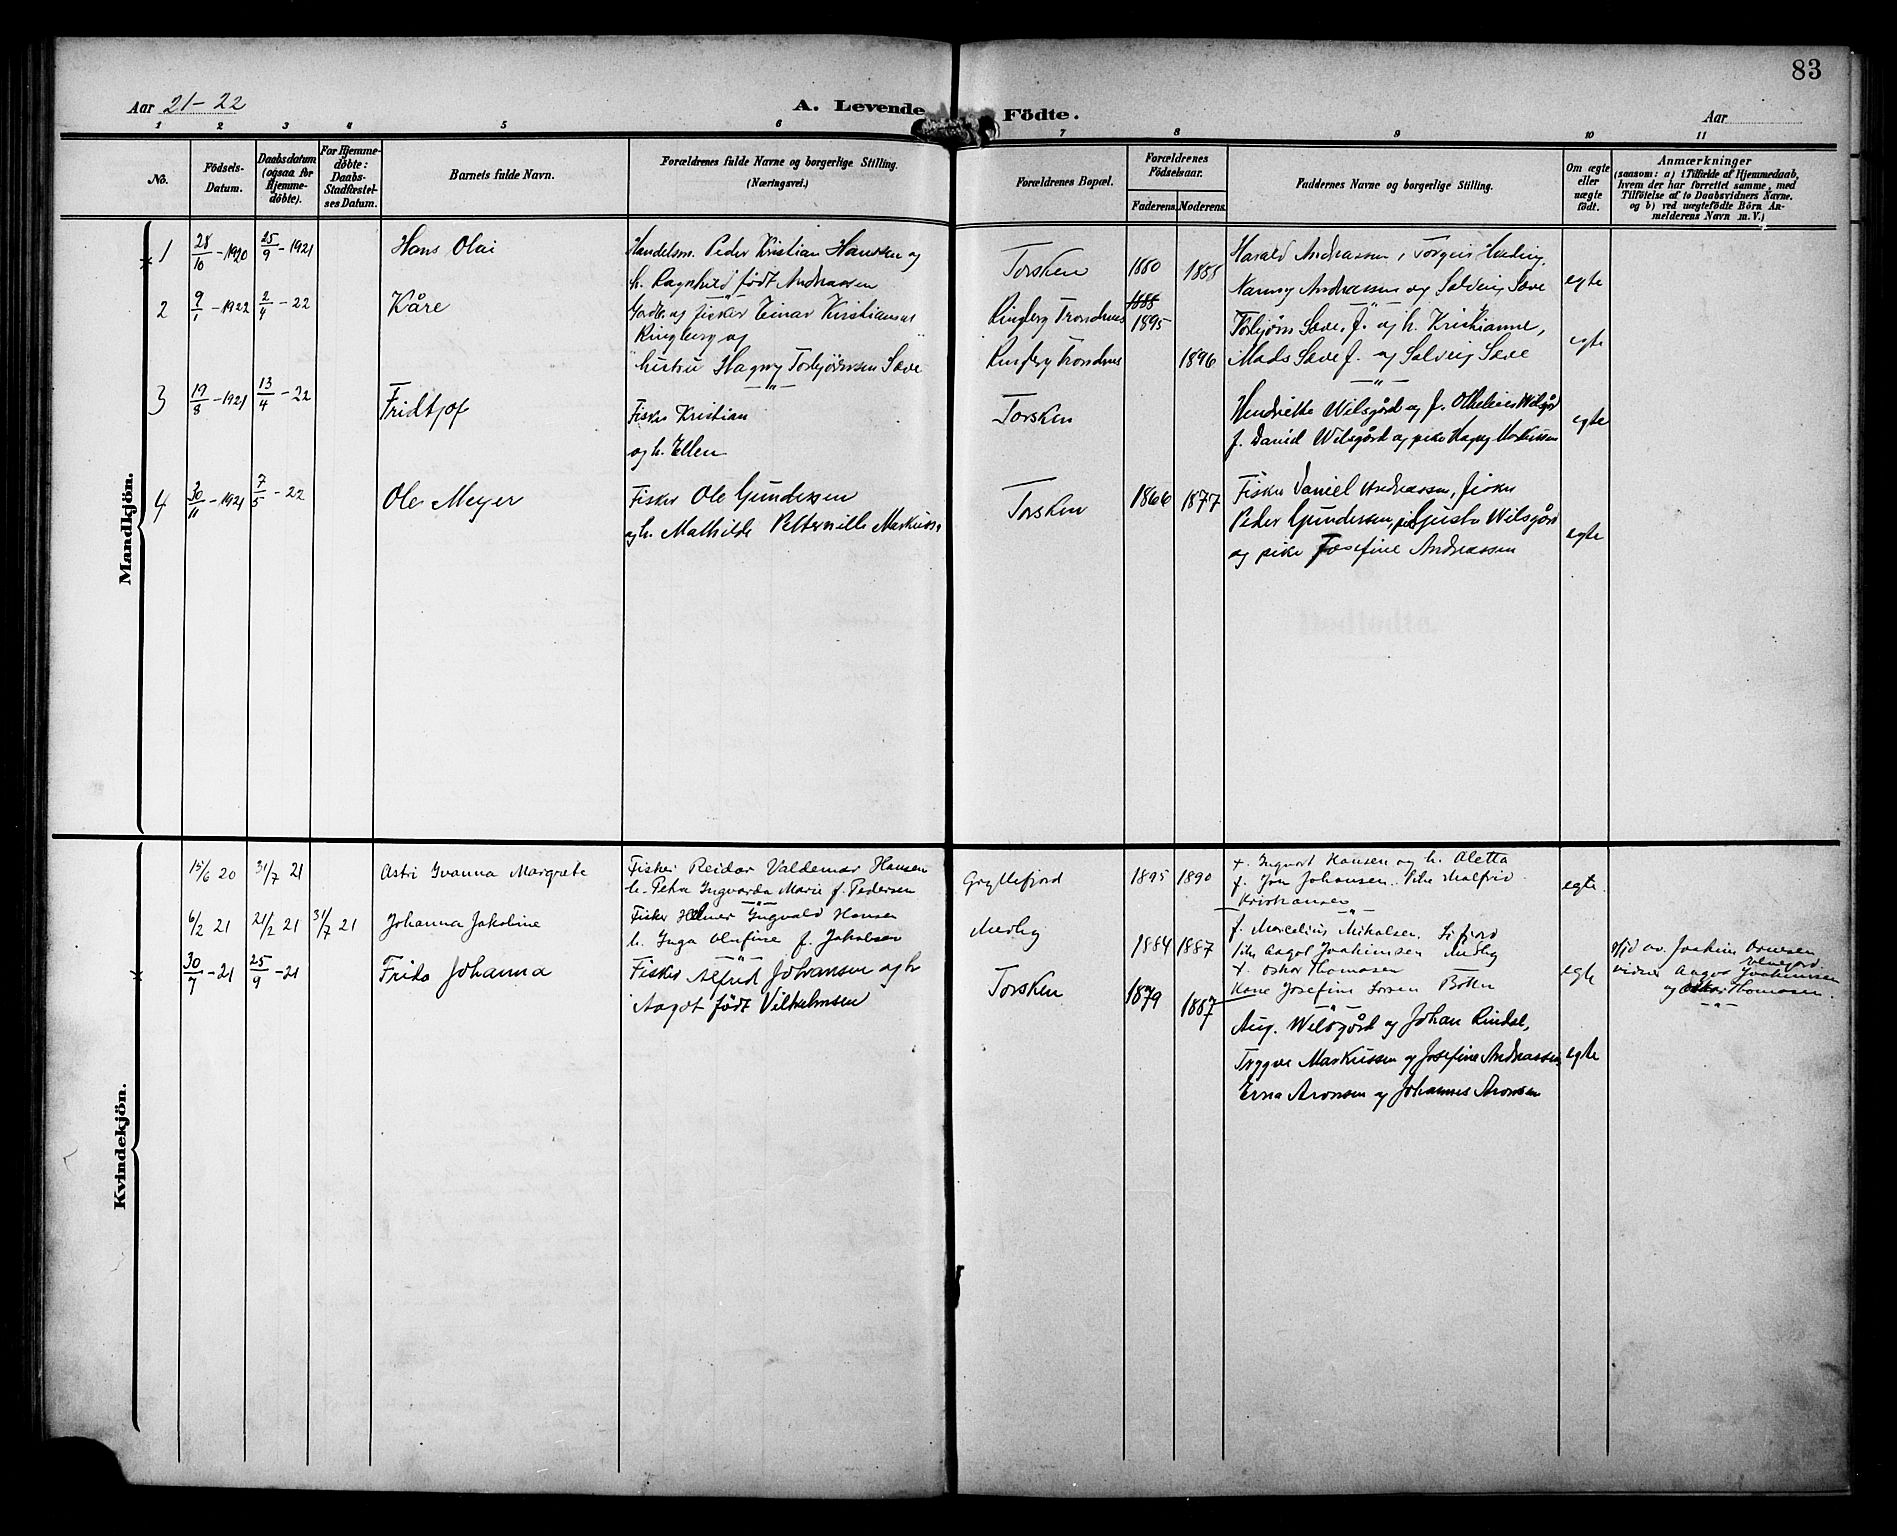 83
Aar 21-22
A. Levende Födte.
Aar
1 2 3 4 5 6 7 8 9 10 11
No.
Födsels-Datum.
Daabsdatum (ogsaa for Hjemmedöbte).
For Hjemmedöbte: Daabs-Stadfæstelses Datum.
Barnets fulde Navn.
Forældrenes fulde Navne og borgerlige Stilling. (Næringsvei.)
Forældrenes Bopæl.
Forældrenes Födselsaar.
Faderens. Moderens.
Faddernes Navne og borgerlige Stilling.
Om ægte eller uægte födt.
Anmærkninger
(saasom: a) i Tilfælde af Hjemmedaab,
hvem der har forrettet samme, med
Tilföielse af to Daabsvidners Navne.
og b) ved uægtefödte Börn Anmelderens Navn m. V.)
Mandkjön.
1 28/10 - 1920 25/9 - 1921 Hans Olai
Handelsm. Peder Kristian Hansen og
h. Ragnhild født Andreassen
Torsken 1880 1885
Harald Andreassen,
Nanny Andreassen og Solveig Sæve
egte
2 9/1 - 1922 2/4 - 22 Kåre
og fisker Einar Kristiansen
Ringberg og
hustru Hagny Torbjørnsen Sæve
Ringberg Trondenes 1888 1895
Ringberg Trondenes 1896
Torbjørn Sæve, f. og h. Kristianne,
Mads Sæve f. og Solveig Sæve
egte
3 19/8 - 1921 13/4 - 22 Fridtjof
Fisker Kristian
og h. Ellen
Torsken
Hendrikke Wilsgård og f. Wilsgård
f. Daniel Wilsgård og pike Hagny Markussen
egte
4 30/11 - 1921 7/5 - 22 Ole Meyer
Fisker Ole Gundersen
og h. Mathilde Petternille Markuss.
Torsken 1866 1877
Fisker Daniel Andreassen, fisker
Peder Gundersen, Wilsgård
og pike Josefine Andreassen
egte
Kvindekjön.
15/6 20 31/7 21 Astri Ivanna Margrete
Fisker Reidar Valdemar Hansen
h. Petra Ingvarda Marie f. Pedersen
Gryllefjord 1895 1890
f. Ingvart Hansen og h. Aletta
f. Jon Johansen. Pike Malfrid
Kristiansen
egte
6/2 21 21/2 21 31/7 21 Johanna Jakobine
Fisker Helmer Ingvald Hansen
h. Inga Olufine f. Jakobsen
Medby 1884 1887
f. Marcelius Mikalsen, Sifjord
Pike Aagot Joakimsen Medby
f. Oskar Thomassen
Kone Josefine Botn
egte
Hjd av. Joakim
vidner Aagot Joakimsen
og Oskar Thomassen.
30/7 - 21 25/9 - 21 Frida Johanna
Fisker Alfred Johansen og h
Aagot født Vilhelmsen
Torsken 1879 1887
Aug. Wilsgård og Johan Rindal,
Trygve Markussen og Josefine Andreassen
Erna Aronsen og Johannes Aronsen
egte